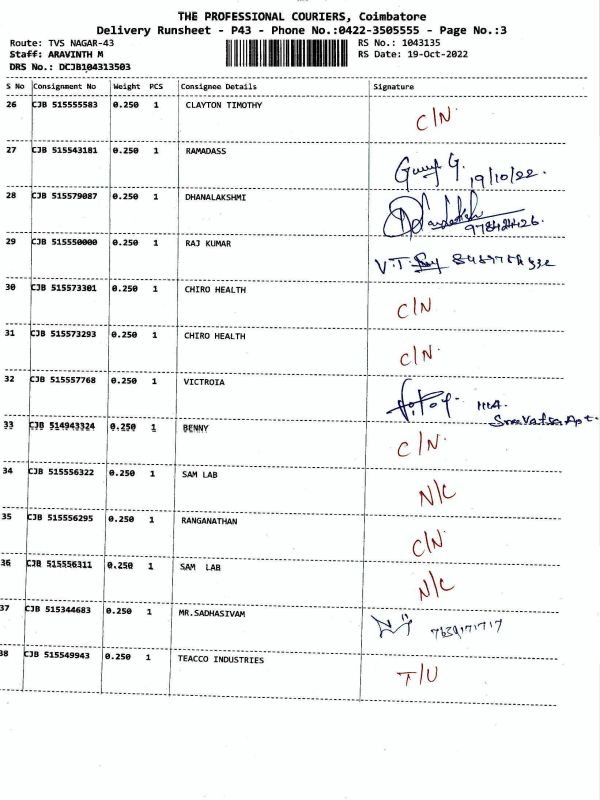 THE PROFESSIONAL COURIERS, Coimbatore
Delivery Runsheet - P43 - Phone No.:0422-3505555 - Page No.:3
Route: TVS NAGAR-43 RS No.: 1043135
Staff: ARAVINTH M RS Date: 19-Oct-2022
DRS No.: DCJB104313503
S No Consignment No Weight PCS Consignee Details Signature
26 CJB 515555583 0.250 1 CLAYTON TIMOTHY C/N
27 CJB 515543181 0.250 1 RAMADASS
19/10/22.
28 CJB 515579087 0.250 1 DHANALAKSHMI
29 CJB 515550000 0.250 1 RAJ KUMAR V.T.
30 CJB 515573301 0.250 1 CHIRO HEALTH C/N
31 CJB 515573293 0.250 1 CHIRO HEALTH C/N
32 CJB 515557768 0.250 1 VICTROIA
33 CJB 514943324 0.250 1 BENNY C/N
34 CJB 515556322 0.250 1 SAM LAB N/C
35 CJB 515556295 0.250 1 RANGANATHAN C/N
36 CJB 515556311 0.250 1 SAM LAB N/C
37 CJB 515344683 0.250 1 MR.SADHASIVAM
38 CJB 515549943 0.250 1 TEACCO INDUSTRIES T/U